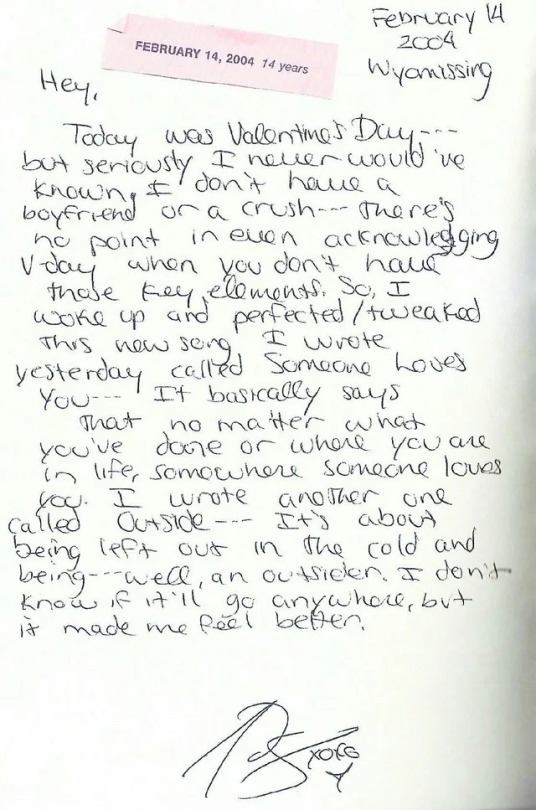 February 14
2004
Wyomissing
FEBRUARY 14, 2004 14 years
Hey,
Today was Valentine's Day---
but seriously I never would've
known, I don't have a
boyfriend or a crush--- there's
no point in even acknowledging
V-day when you don't have
those key elements. So, I
woke up and perfected/tweaked
this new song I wrote
yesterday called Someone Loves
You--- It basically says
that no matter what
you've done or where you are
in life, somewhere someone loves
you. I wrote another one
called Outside--- It's about
being left out in the cold and
being---well, an outsider. I don't
know if it'll go anywhere, but
it made me feel better.